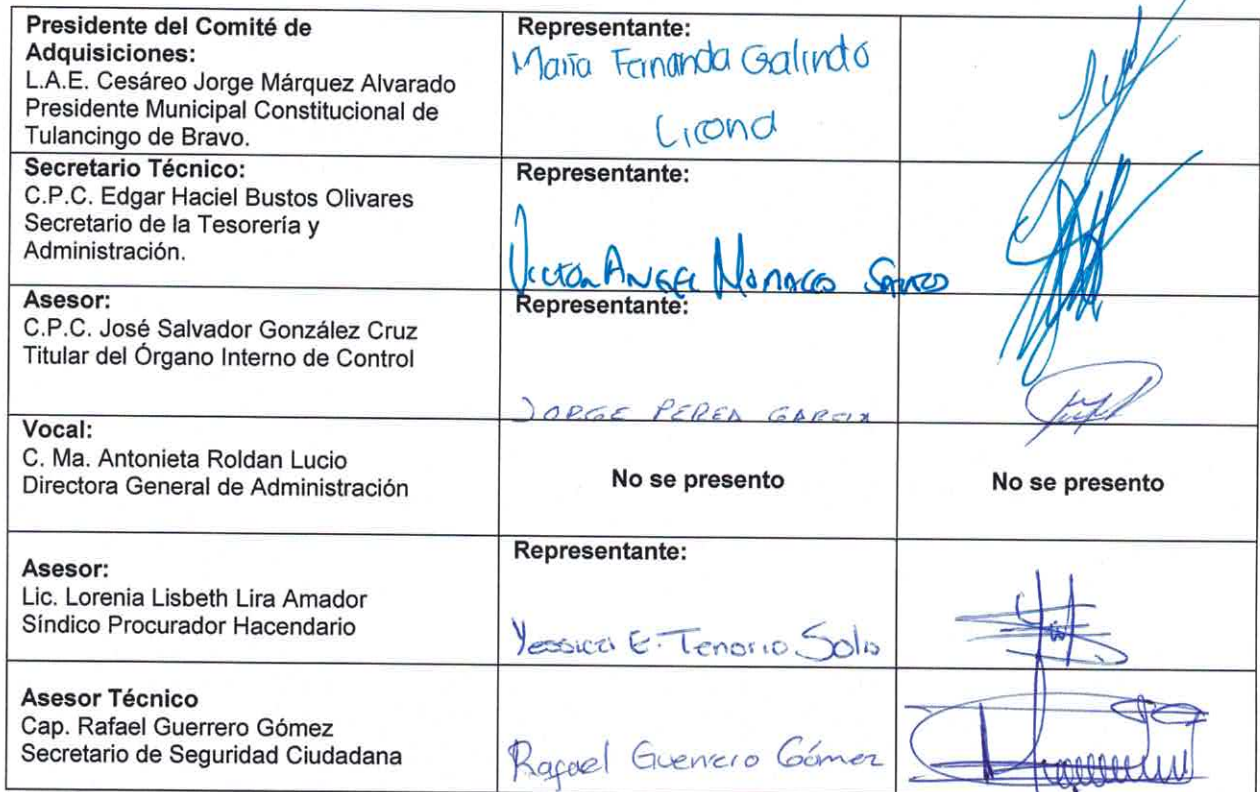 Presidente del Comité de
Adquisiciones:
L.A.E. Cesáreo Jorge Márquez Alvarado
Presidente Municipal Constitucional de
Tulancingo de Bravo.
Representante:
María Fernanda Galindo
Licona
Secretario Técnico:
C.P.C. Edgar Haciel Bustos Olivares
Secretario de la Tesorería y
Administración.
Representante:
Victor Angel
Asesor:
C.P.C. José Salvador González Cruz
Titular del Órgano Interno de Control
Representante:
JORGE PEREA GARCIA
Vocal:
C. Ma. Antonieta Roldan Lucio
Directora General de Administración
No se presento
No se presento
Asesor:
Lic. Lorenia Lisbeth Lira Amador
Síndico Procurador Hacendario
Representante:
Yessica E. Tenorio Solis
Asesor Técnico
Cap. Rafael Guerrero Gómez
Secretario de Seguridad Ciudadana
Rafael Guerrero Gómez